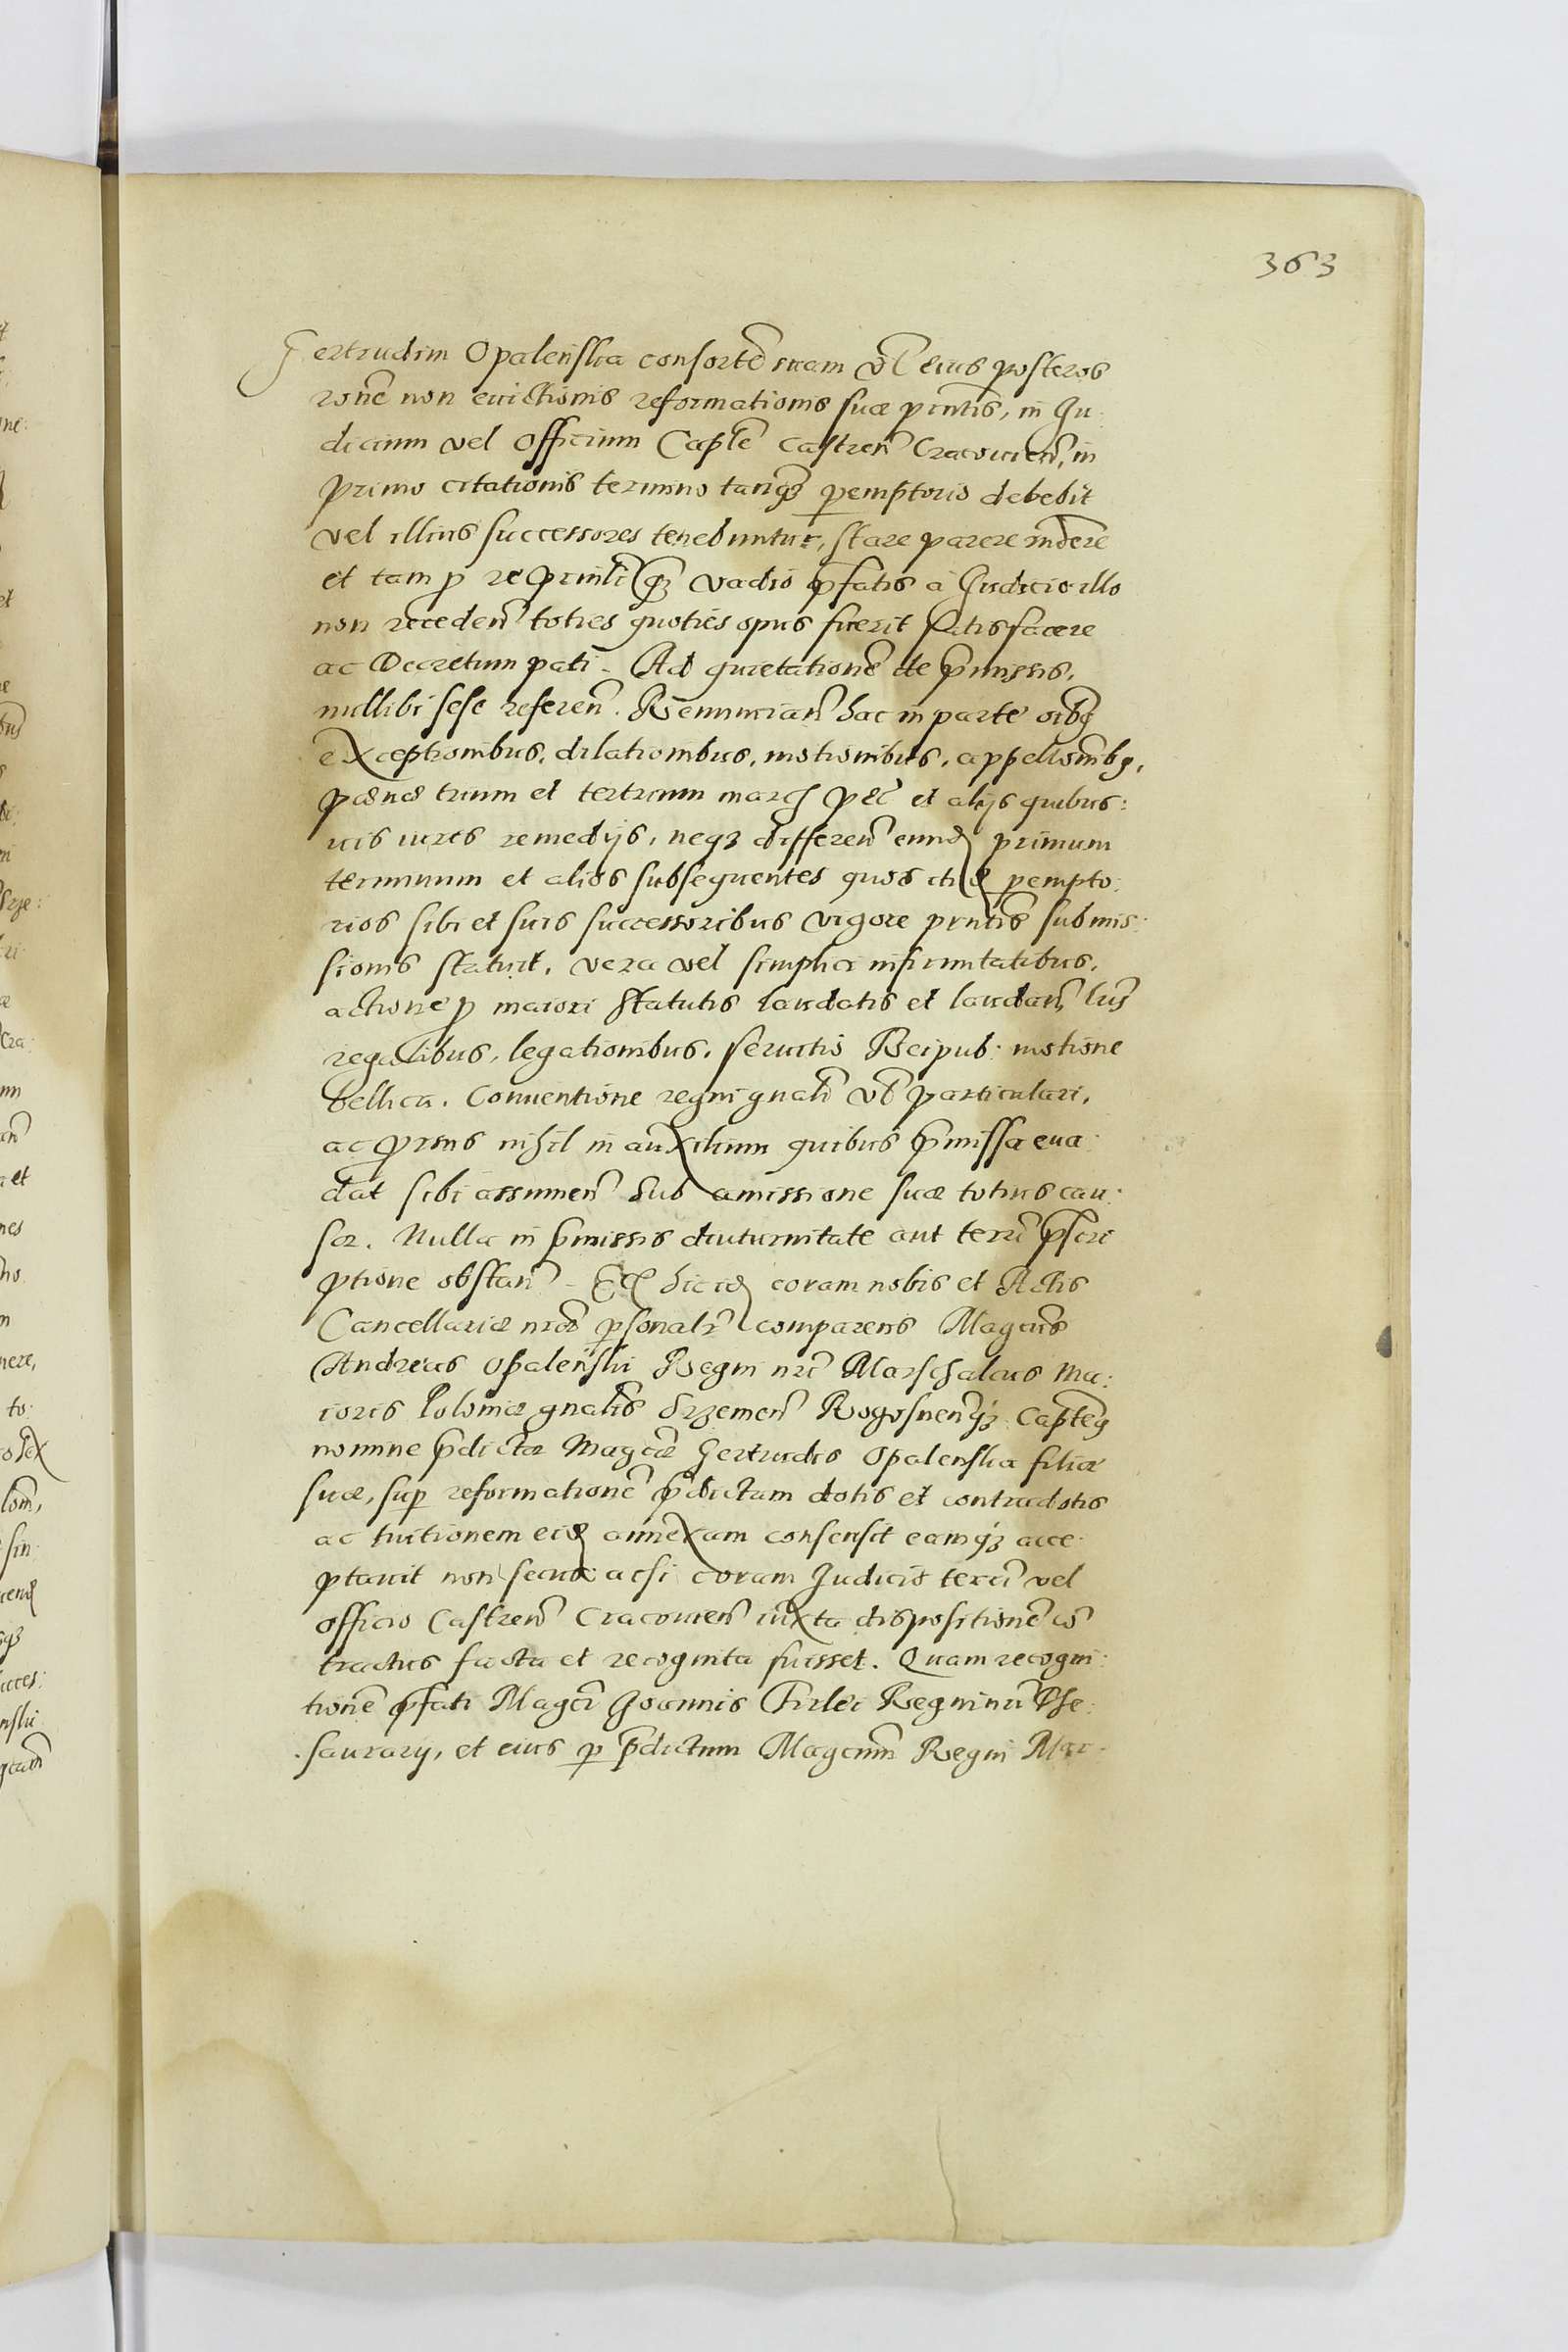 363
Gertrudim Opalenska consortē suam vl eius posteros
ronē non euictionis reformationis suæ pntis, in Iu:
dicium vel Officium Captle castren Cracouien, in
primo citationis termino tanq peremptorio debebit
vel illius successores tenebuntur, stare parere rndere
et tam p re principli q vadio pfatis à Iudicio illo
non receden toties quoties opus fuerit satisfacere
ac Decretum pati. Ad quietationē de pmissis,
nullibi sese referen. Renuncian hac in parte oibq
exceptionibus, dilationibus, motionibus, appellonibq,
pœnæ trium et tertrium march pti et alijs quibus:
uis iuris remedijs, neq differen eund primum
terminum et alios subsequentes quos etid pempto:
rios sibi et suis successoribus vigore pntis submis:
sionis statuit, vera vel simplici infirmitatibus,
actione p maiori statutis laudatis et laudan, lris
regalibus, legationibus, seruitio Reipub: motione
bellica. Conuentione regni gnali vl particulari,
ac prsus nihil in auxilium quibus pmissa eua:
dat sibi assumen sub amissione suæ totius cau:
sæ. Nulla in pmissis diuturnitate aut terræ pscri
ptione obstan. Et hic id coram nobis et Actis
Cancellariæ nræ psonalr comparens Magcus
Andreas Opalenski Regni nri Marschalcus Ma:
ioris Poloniæ gnalis Srzemen Rogosnenq Capteq
nomine pdictæ Magcæ Gertrudis Opalenska filiæ
suæ, sup reformationē pdictam dotis et contradotis
ac tuitionem eid annexam consensit eamq acce:
ptauit non secus acsi coram Iudicio terri vel
officio Castren Cracouien iuxta dispositionē cō
tractus facta et recognita fuisset. Quam recogni:
tionē pfati Magci Ioannis Firlei Regni nri The:
saurarij, et eius p pdictum Magcum Regni Mar: